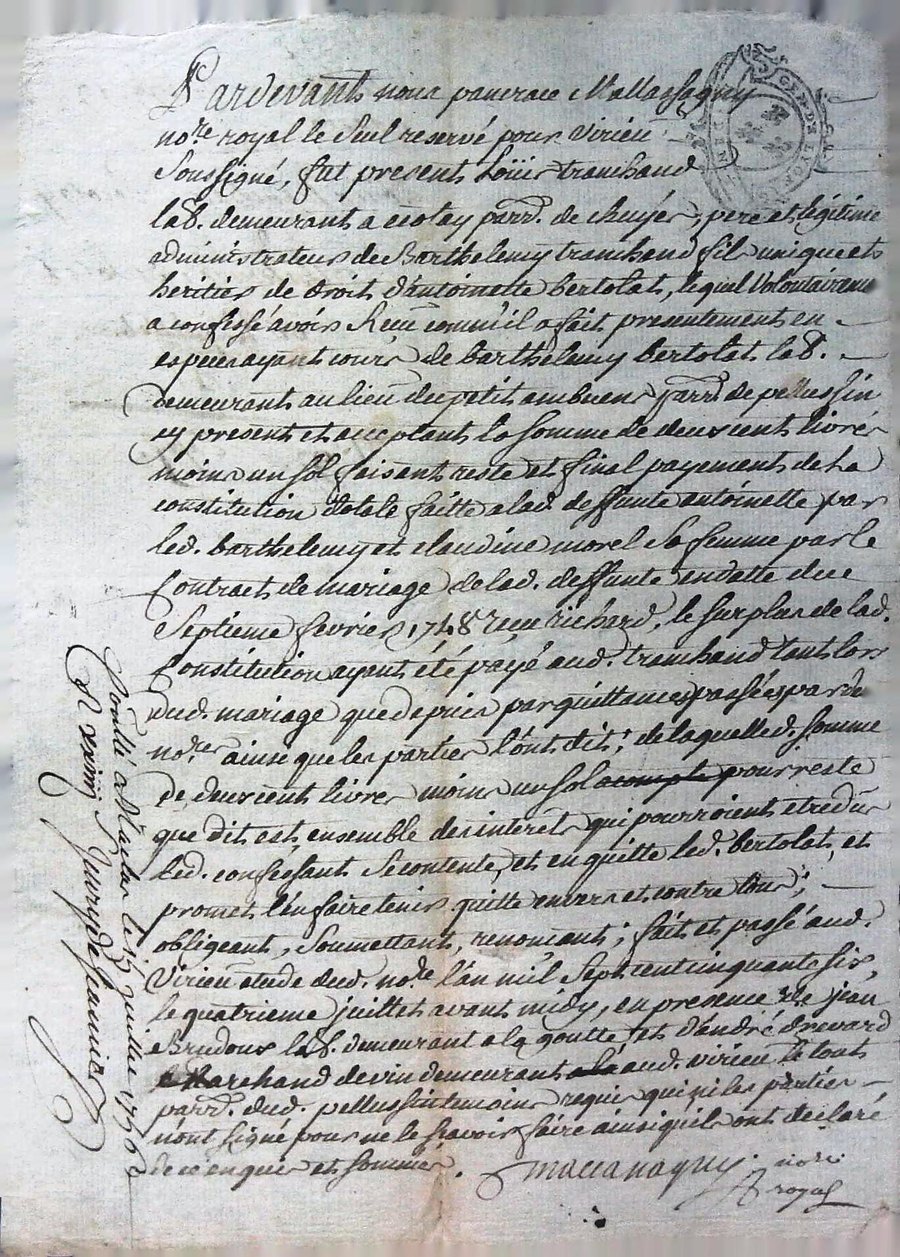 Pardevant nous pancrace Mallassagny
no.re royal le Seul reservé pour Virieu
Soussigné, fut present Loüis tranchand
lab. demeurant a ecolay parr. de chuyer, pere et legitime
administrateur de Barthelemy tranchand fils unique et
heritier de droit d'antoinette bertolat, lequel Volontairement
a confessé avoir Receu comm'il a fait presentement en
especes ayant cours de barthelemy bertolat lab.
demeurant au lieu du petit embuent parr. de pellussin
cy present et acceptant la somme de deux cent livres
moins un sol faisant reste et final payement de la
constitution dotale faitte a lad. deffunte antoinette par
led. barthelemy et claudine morel Sa femme par le
Contract de mariage de lad. deffunte en datte du
Septieme fevrier 1748 receu richard, le surplus de lad.
Constitution ayant été payé aud. tranchand tant lors
dud. mariage que depuis par quittances passées par de
no.res ainsi que les parties l'ont dit; de laquelle d. somme
de deux cent livres moins un sol acompte pour reste
que dit est, ensemble des interets qui pourroient etre dûs
led. confessant Se contente, et en quitte led. bertolat, et
promet l'en faire tenir quitte envers et contre tous;
obligeant, Soumettant, renonçant; fait et passé aud.
Virieu etude dud. no.re l'an mil Sept cent cinquante six,
le quatrieme juillet avant midy, en presence de jean
lab. demeurant a la goutte et d'andré drevard
Marchand de vin demeurant aud. virieu le tout
parr. dud. pellussin temoins requis qui ni les parties
n'ont signé pour ne le sçavoir faire ainsi qu'ils ont declaré
de ce enquis et sommés.
no.re
royal
GEN. DE LYON
Conllé a le 15 juillet 1756
R